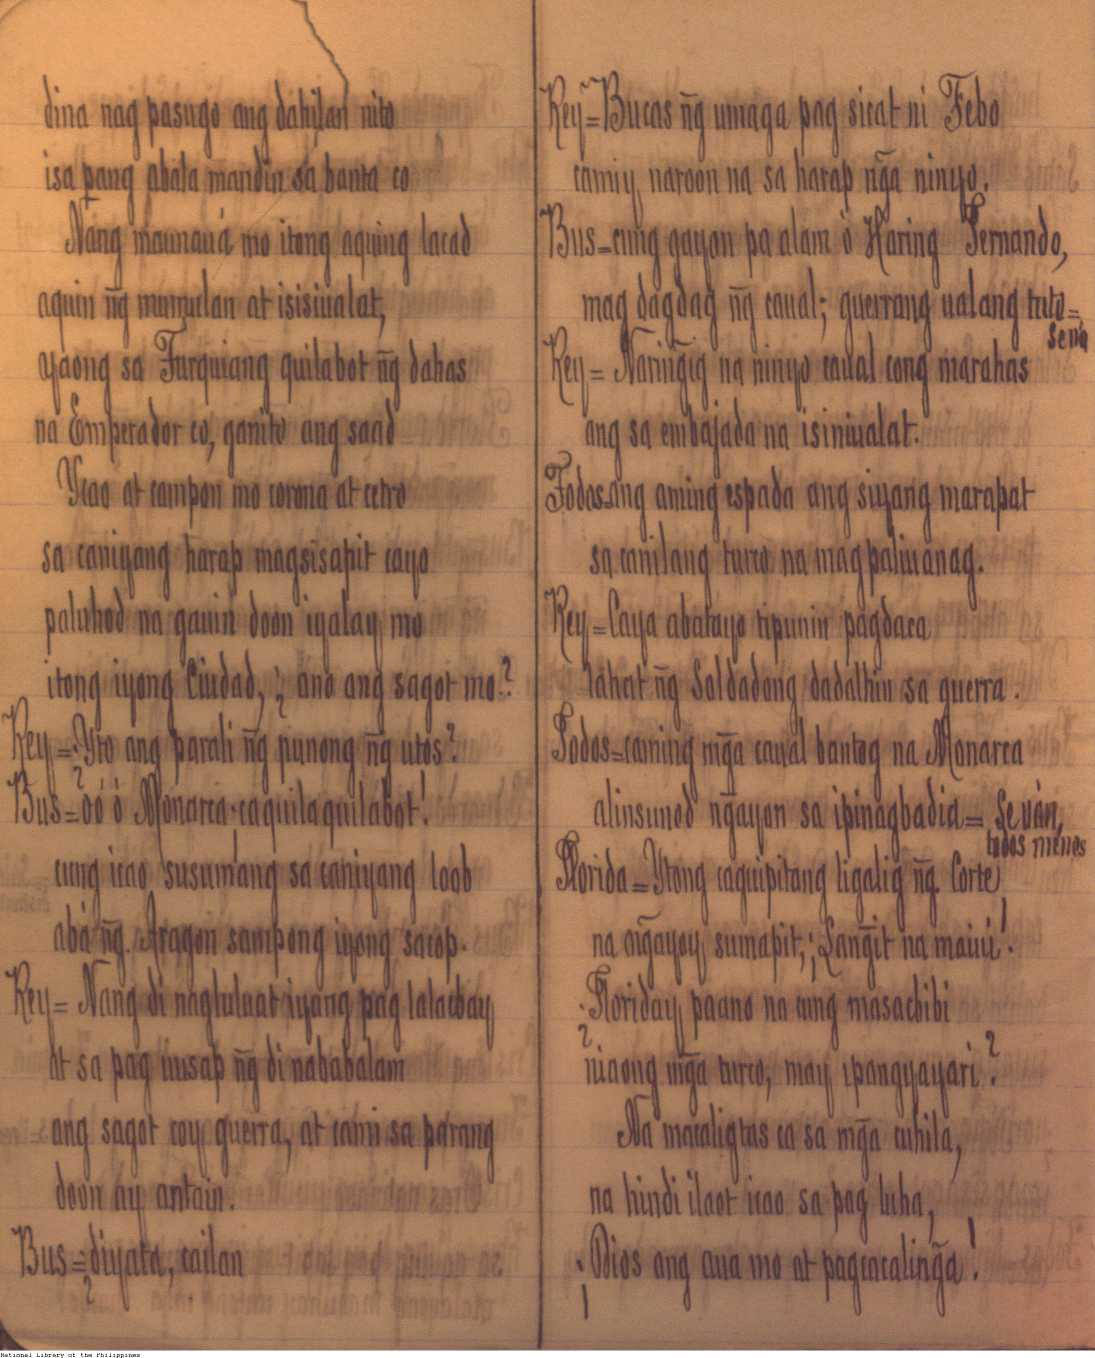 dina nag pasugo ang dahilan nito
isa pang abala mandin sa banta co
Nang maunaua mo itong aquing lacad
aquin n̄g mumulan at isisiualat,
ayaong sa Turquiang quilabot n̄g dahas
na Emperador co, ganito ang saad
Ycao at campon mo corona at cetro
sa caniyang harap magsisapit cayo
paluhod na gauin doon iyalay mo
itong iyong Ciudad, ¿ ano ang sagot mo?
Rey = ¿Yto ang parali n̄g punong n̄g utos?
Bus = oó ó Monarca caquilaquilabot!
cung icao susumang sa caniyang loob
abá n̄g Aragon sampong iyong sacop.
Rey = Nang di nagluluat iyang pag lalacbay
At sa pag uusap n̄g di nababalam
ang sagot coy guerra, at cami sa parang
doon ay antain.
Bus = ¿diyata, cailan
Rey = Bucas n̄g umaga pag sicat ni Febo
camiy naroon na sa harap n̄ga ninyo.
Bus = cung gayon pa alam ó Haring Fernando,
mag dagdag n̄g caual; guerrang ualang tuto =
se vá
Rey = Narin̄gig na ninyo caual cong marahas
ang sa embajada na isiniualat.
Todos = ang aming espada ang siyang marapat
sa canilang turco na mag paliuanag.
Rey = Caya abatayo tipunin pagdaca
lahat n̄g Soldadong dadalhin sa guerra.
Todos = caming mn̄ga caual bantog na Monarca
alinsunod n̄gayon sa ipinagbadia = Se ván,
todos menos
Florida = Ytong caguipitang ligalig n̄g Corte
na n̄gayoy sumapit, ¡Lan̄git na maiui!
¿Floriday paano na ang masacbibi
niaong mn̄ga turco, may ipangyayari?
Na macaligtas ca sa mn̄ga cuhila,
na hindi ilaot icao sa pag luha,
¡Dios ang aua mo at pagcacalin̄ga!
National Library of the Philippines